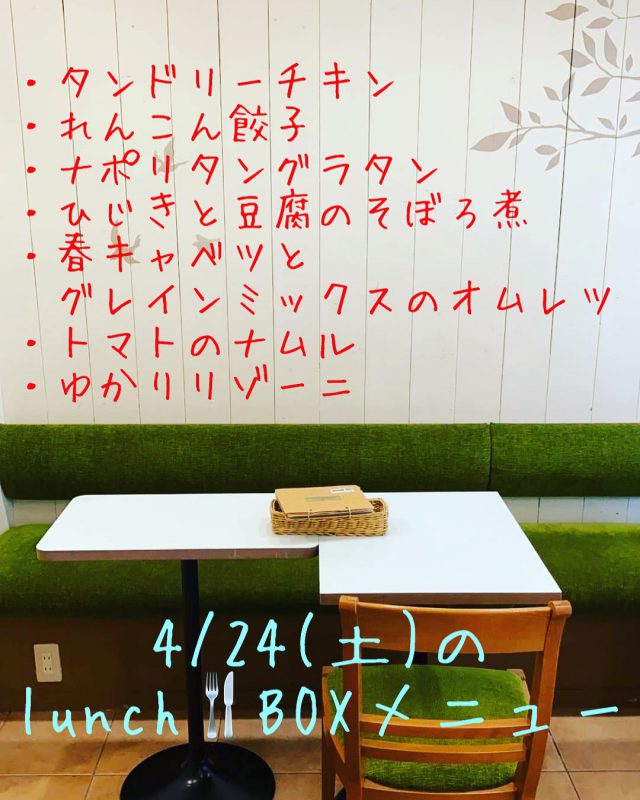 ・タンドリーチキン
・れんこん餃子
・ナポリタングラタン
・ひじきと豆腐のそぼろ煮
・春キャベツと
グレインミックスのオムレツ
・トマトのナムル
・ゆかりリゾーニ
4/24(土)の
lunch🍴BOXメニュー